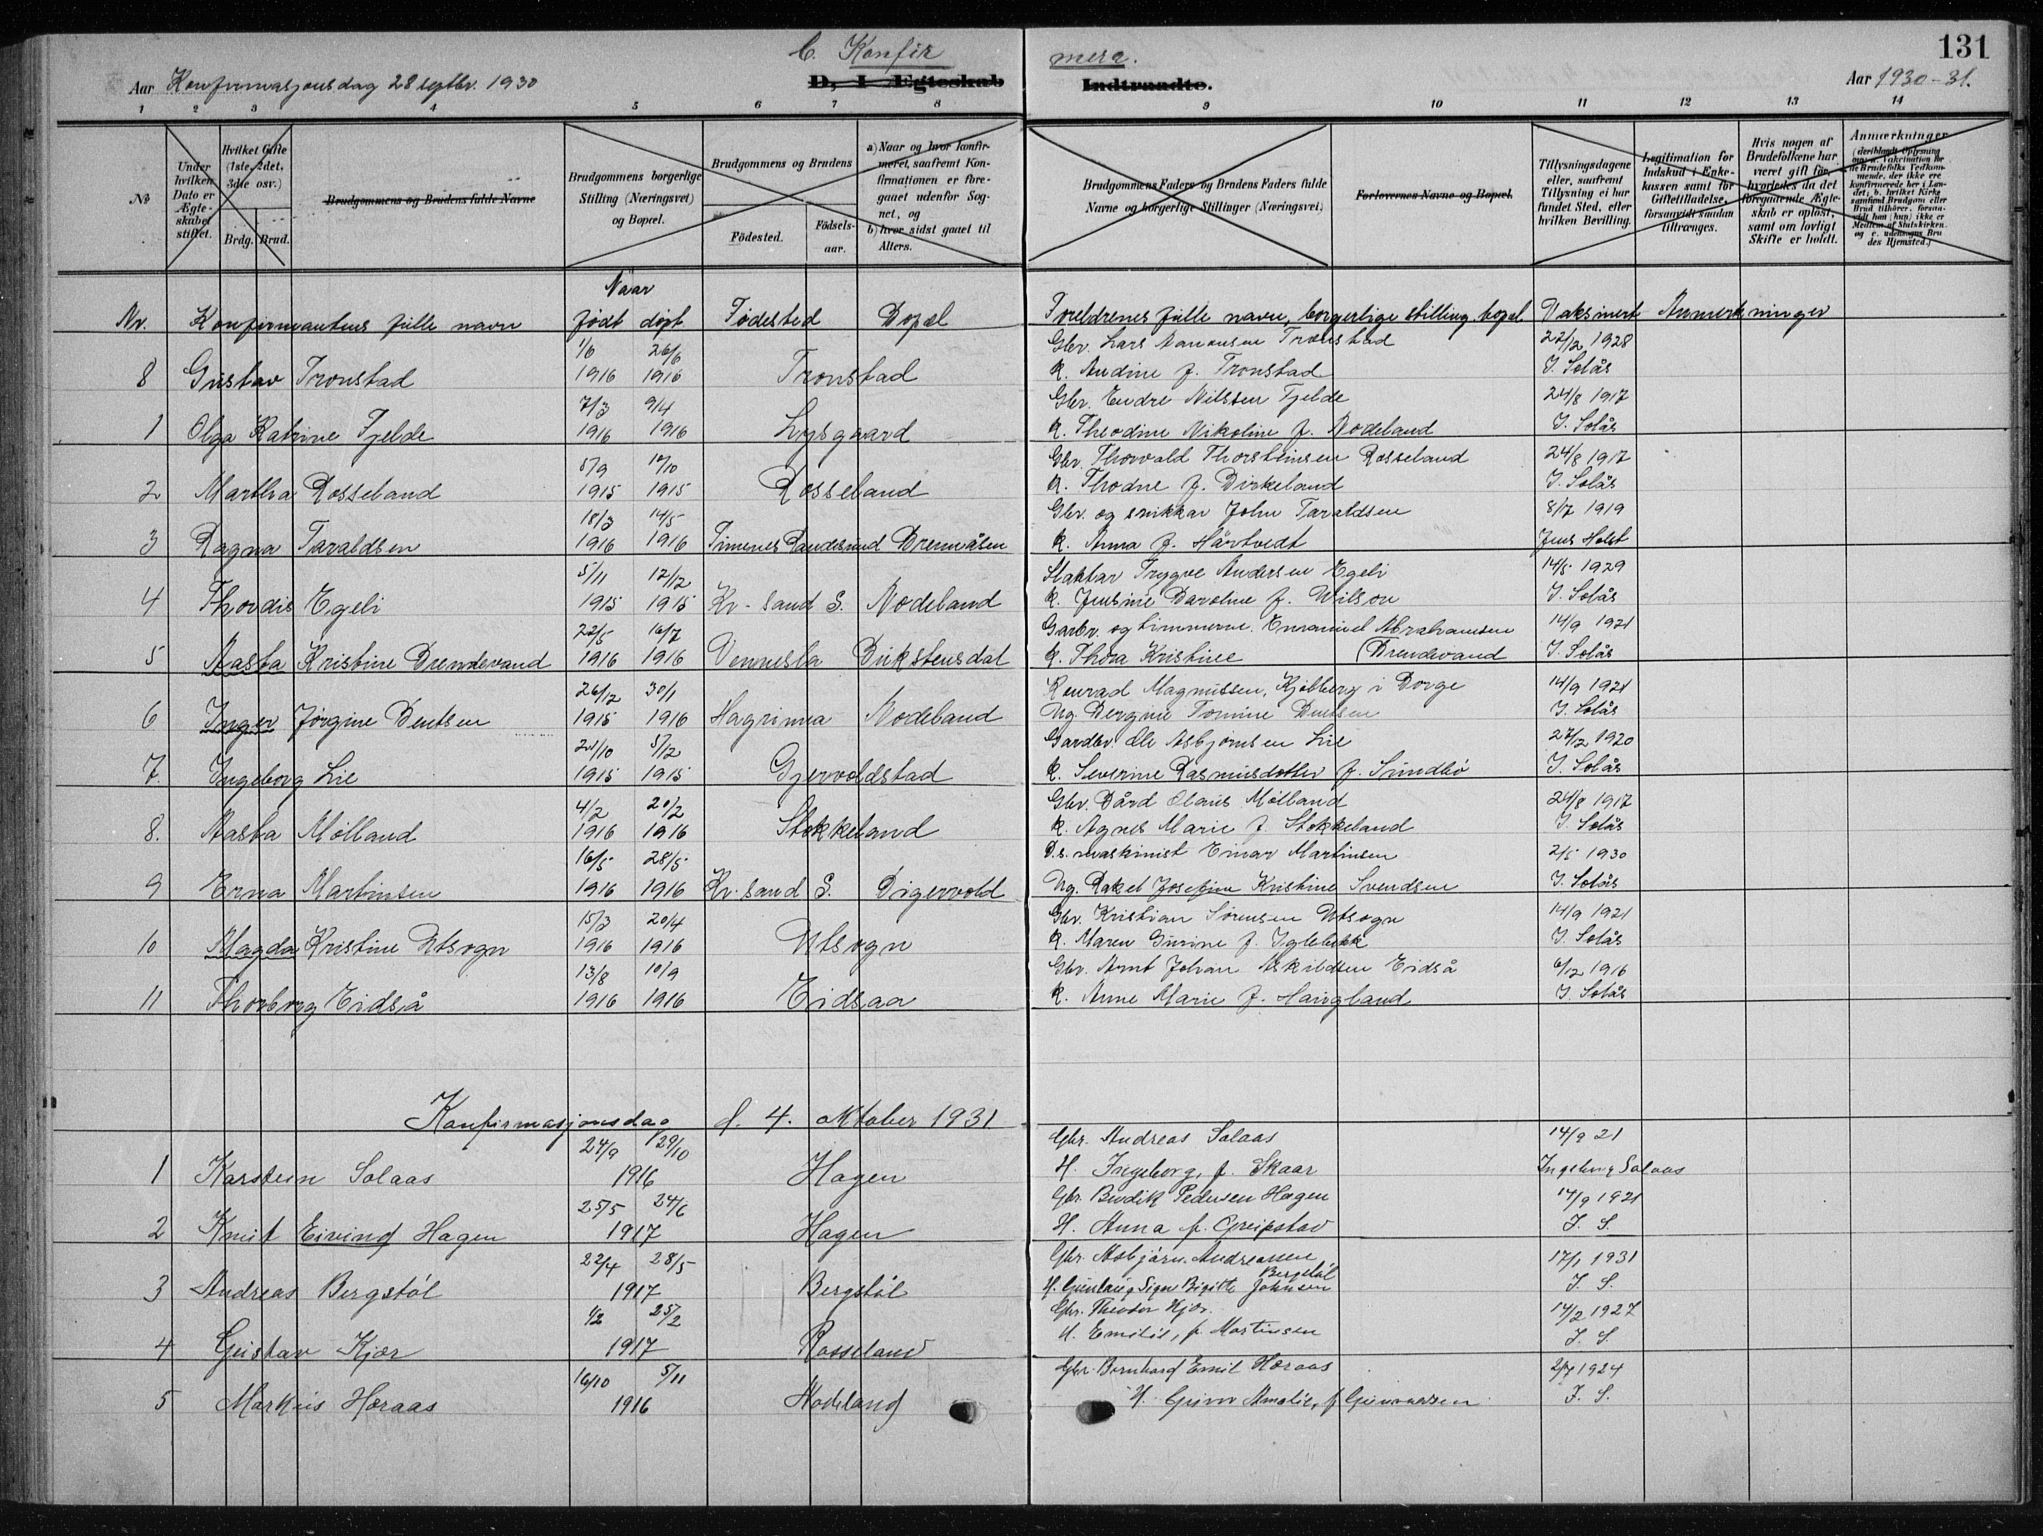 131
C. Konfir mera.
Aar Konfirmasjonsdag 28 septbr. 1930
D, I Ægteskab Indtraadte.
Aar 1930-31.
1 2 3 4 5 6 7 8 9 10 11 12 13 14
No
Under hvilken Dato er Ægteskabet stiftet.
Hvilket Gifte (1ste, 2det, 3die osv.)
Brdg. Brud.
Brudgommens og Brudens fulde Navne
Brudgommens borgerlige Stilling (Næringsvei) og Bopæl.
Brudgommens og Brudens
Fødested. Fødselsaar.
a) Naar og hvor konfirmeret, saafremt Konfirmationen er foregaaet udenfor Sognet, og
b) hvor sidst gaaet til Alters.
Brudgommens Faders og Brudens Faders fulde Navne og borgerlige Stillinger (Næringsvei)
Forlovernes Navne og Bopæl.
Tillysningsdagene eller, saafremt Tillysning ei har fundet Sted, efter hvilken Bevilling.
Legitimation for Indskud i Enkekassen samt for Giftetilladelse, forsaavidt saadan tiltrænges.
Hvis nogen af Brudefolkene har været gift før, hvorledes da det foregaaende Ægteskab er opløst, samt om lovligt Skifte er holdt.
Anmærkninger
Nr. Konfirmantens fulle navn Naar født døpt Fødested Bopæl Foreldrenes fulle navn, borgerlige stilling bopel Vaksinert Anmerkninger
8 Gustav Tronstad 1/6 1916 26/6 1916 Tronstad Gbr. Lars Aanensen Tronstad 22/12 1928
k. Andine f. Tronstad J. Solås
1 Olga Katrine Fjelde 7/3 1916 9/4 1916 Lysgaard Gbr. Endre Nilssen Fjelde 24/8 1917
k. Theodine Nikoline f. Nodeland J. Solås
2 Martha Rosseland 5/9 1915 10/10 1915 Rosseland Gbr. Thorvald Thorsteinsen Rosseland 24/8 1917
k. Thodne f. Birkeland J. Solås
3 Ragna Taraldsen 18/3 1916 14/5 1916 Timenes Randesund Brennåsen Gbr. og snikkar John Taraldsen 8/7 1919
k. Anna f. Hårtvedt Jens Holst
4 Thordis Egeli 5/11 1915 12/12 1915 Kr-sand S. Nodeland Slaktar Trygve Andersen Egeli 14/5 1929
k. Jensine Baroline f. Wilson J. Solås
5 Aasta Kristine Drendevand 22/5 1916 16/7 1916 Vennesla Bukstensdal Garbr. og timmerm. Emanuel Abrahamsen 14/9 1921
k. Thora Kristine (Drendevand J. Solås
6 Inger Jørgine Bentsen 26/12 1915 30/1 1916 Hagrinna Nodeland Konrad Magnussen, Kjølberg i Borge 14/9 1921
Ug. Bergine Tomine Bentsen J. Solås
7. Ingeborg Lie 21/10 1915 5/12 1915 Gjervoldstad Gardbr. Ole Asbjørnsen Lie 27/2 1920
k. Severine Rasmusdotter f. Sundbø J. Solås
8. Aasta Mølland 4/2 1916 20/2 1916 Stokkeland Gbr. Bård Olaus Mølland 24/8 1917
k. Agnes Marie f. Stokkeland J. Solås
9 Erna Martinsen 16/5 1916 28/5 1916 Kr.sand S. Digervold D.s. maskinist Einar Martinsen 2/5 1930
Ug. Rakel Josefine Kristine Svendsen J. Solås
10 Magda Kristine Utsogn 15/3 1916 20/4 1916 Utsogn Gbr. Kristian Sørensen Utsogn 14/9 1921
k. Maren Gurine f. Iglebekk J. Solås
11 Thorborg Eidså 13/8 1916 10/9 1916 Eidsaa Gbr. Arnt Johan Askildsen Eidså 6/12 1916
k. Anne Marie f. Haugland J. Solås
Konfirmasjonsdag d. 4. oktober 1931
1 Karsten Solaas 24/9 29/10 1916 Hagen Gbr. Andreas Solaas 14/9 21
H. Ingeborg, f. Skaar Ingeborg Solaas
2 Knut Eivind Hagen 25/5 24/6 1917 Hagen Gbr. Bendik Pedersen Hagen 14/9 1921
H. Anna f. Greipstad J. S.
3 Andreas Bergstøl 22/4 28/5 1917 Bergstøl Gbr. Asbjørn Andreassen Bergstøl 17/1 1931
H. Gunlaug Signe Birgitte Johnsen J. S.
4 Gustav Kjær 1/2 25/2 1917 Rosseland Gbr. Theodor Kjær. 14/2 1927
H. Emilie, f. Martinsen J. S.
5 Markus Høraas 16/10 5/11 1916 Nodeland Gbr. Bernhard Emil Høraas 2/7 1924
H. Gunn Amalie, f Gunnarsen J. S.